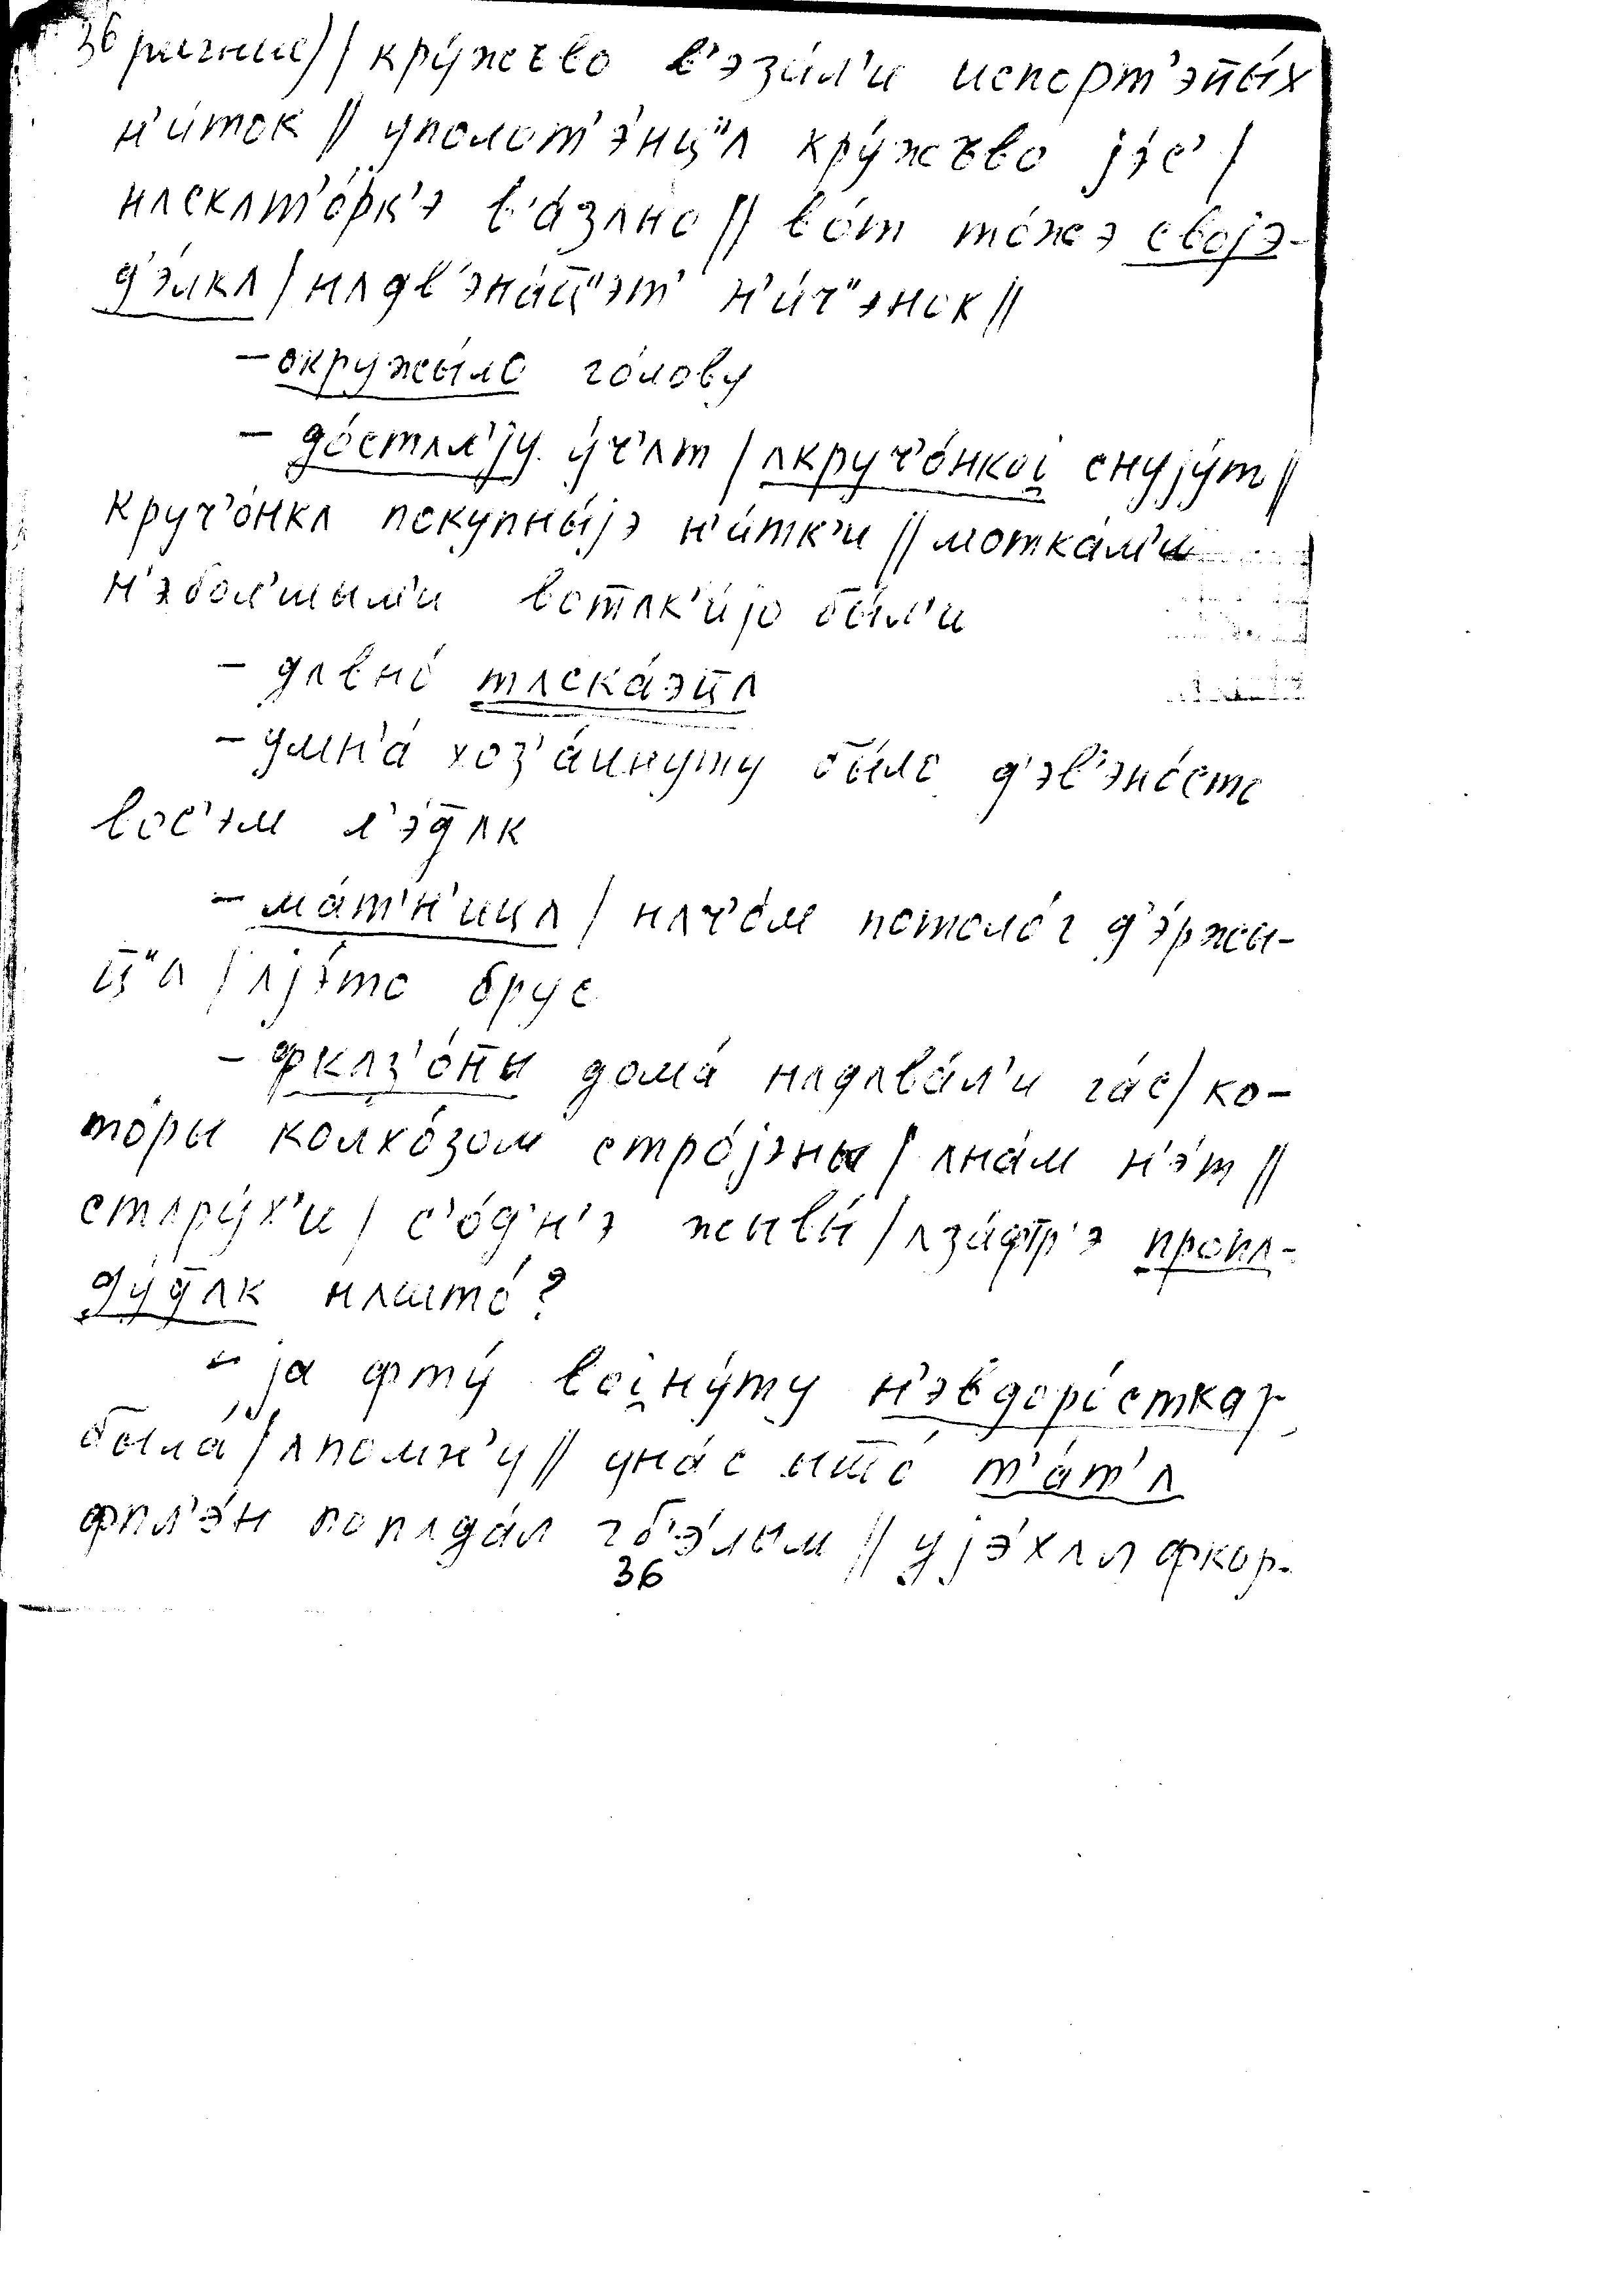 36 ричние)/ кру́жъво в'эза́л'и испорт'эн̄ы́х
н'и́ток // уполот'э́нц"ʌ кру́жъво jэ́с' /
нʌскʌт'о́рк'э в'а́зʌно // во́т то́жэ своjэ-
д'э́лкʌ / нʌдв'эна́ц̄"эт' н'и́ч"энок //
– окружы́ло го́лову
– до́стʌл'jу у́ч'ʌт / ʌкруч'о́нкоi̯ снуjу́т //
круч'о́нкʌ покупны́jэ н'и́тк'и // мотка́м'и
н'эбол'шым'и вот̄ʌк'и́jо бы́л'и
– дʌвно́ тʌска́эц̄ʌ
– умн'а́ хоз'а́инуту бы́ло д'эв'эно́сто
вос'эм л'э́д̄ʌк
– ма́т'н'ицʌ / нʌч'о́м потоло́г д'э́ржы-
ц̄"ʌ / ʌjэ́то брус
– фкʌз'о́н̄ы дома́ нʌдʌва́л'и га́с / ко-
то́ры колхо́зом стро́jэны / ʌна́м н'э́т //
стʌру́х'и / с'о́д'н'э жывы́ / ʌза́фтр'э пропʌ-
ду́д̄ʌк нʌшто́?
– jа фту́ воi̯ну́ту н'эвдоро́сткаj
была́ / ʌпомн'у // уна́с ыт̄о́ т'а́т'ʌ
фпл'э́н попʌда́л гб'э́лым // уjэ́хʌл фкор-
36